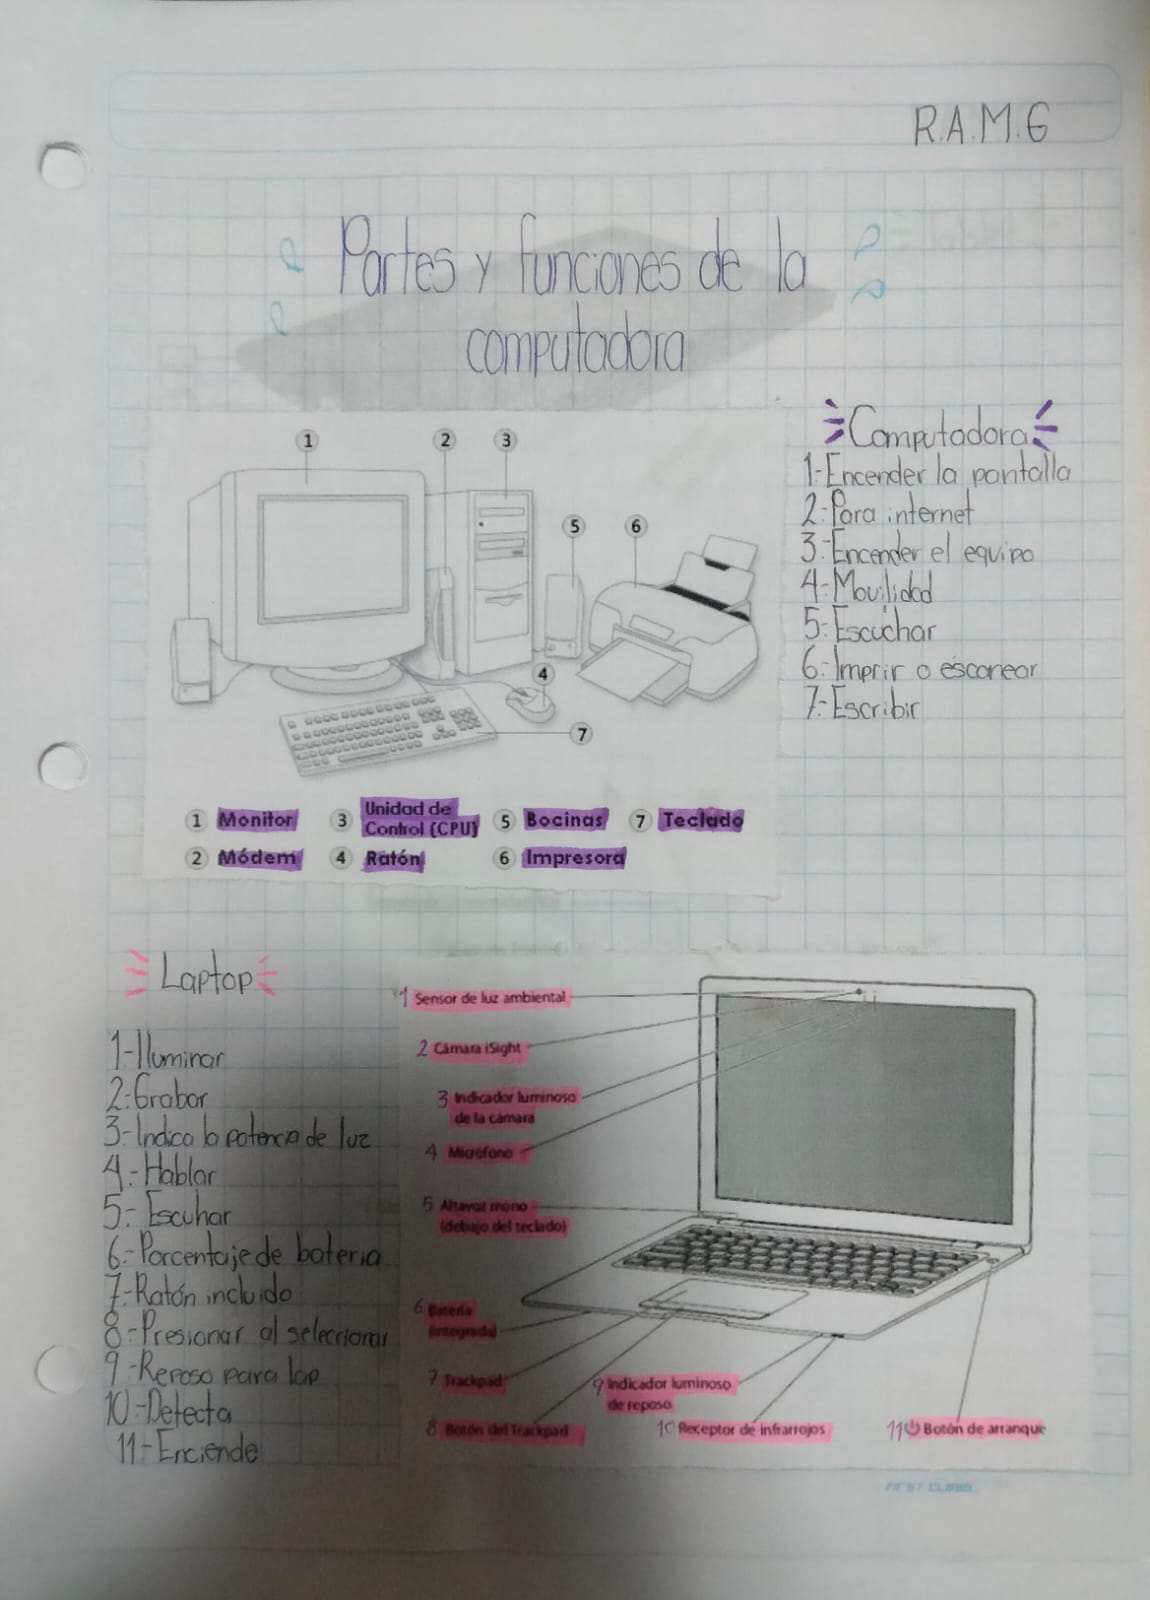 R.A.M.G
Partes y funciones de la
computadora
1
2
3
5
6
4
7
1 Monitor
3 Unidad de
Control (CPU)
5 Bocinas
7 Teclado
2 Módem
4 Ratón
6 Impresora
Computadora
1-Encender la pantalla
2-Para internet
3-Encender el equipo
4-Movilidad
5-Escuchar
6-Imprir o escanear
7-Escribir
Laptop
1-Iluminar
2-Grabar
3-Indica la potencia de luz
4-Hablar
5-Escuhar
6-Porcentaje de bateria
7-Ratón incluido
8-Presionar al seleccionar
9-Reposo para lap
10-Detecta
11-Enciende
1 Sensor de luz ambiental
2 Cámara iSight
3 Indicador luminoso
de la cámara
4 Micrófono
5 Altavoz mono
(debajo del teclado)
6 Batería
(integrada)
7 Trackpad
8 Botón del Trackpad
9 Indicador luminoso
de reposo
10 Receptor de infrarrojos
11 Botón de arranque